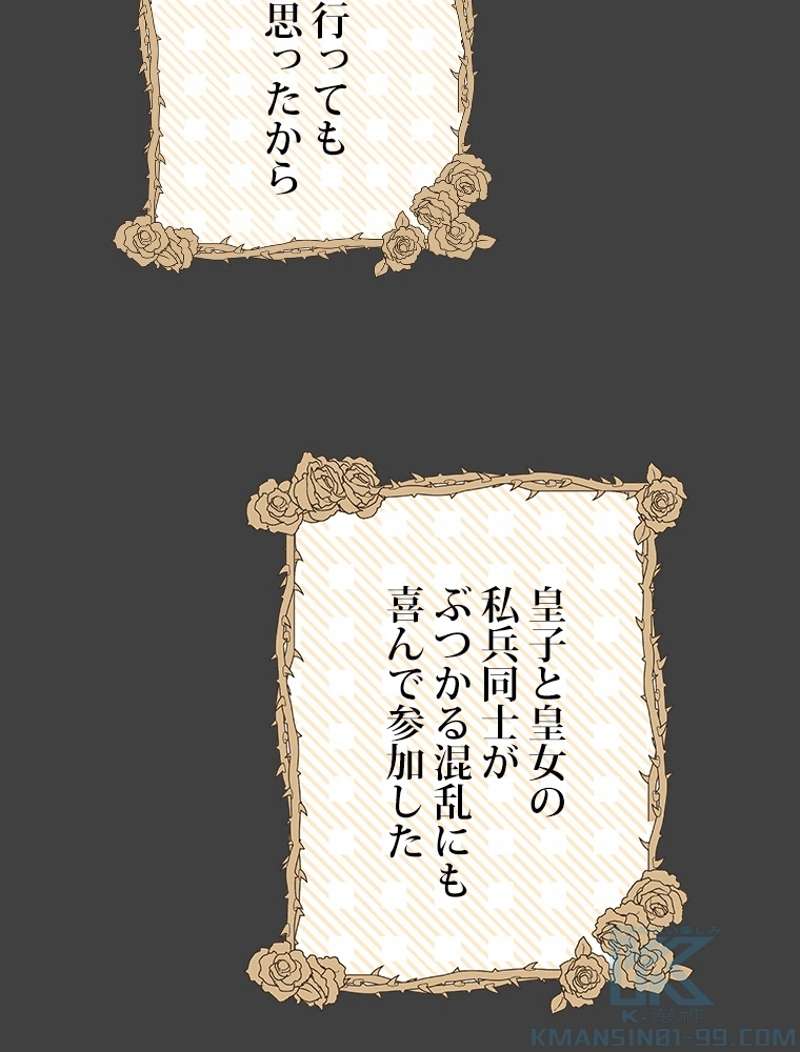 行っても
思ったから
皇子と皇女の
私兵同士が
ぶつかる混乱にも
喜んで参加した
KMANSIN01-99.COM